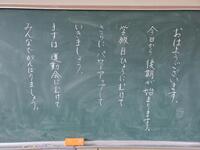 おはようございます。
今日から後期が始まります。
学級目ひょうにむけて
さらにパワーアップして
いきましょう。
まずは運動会にむけて
みんなでがんばりましょう。